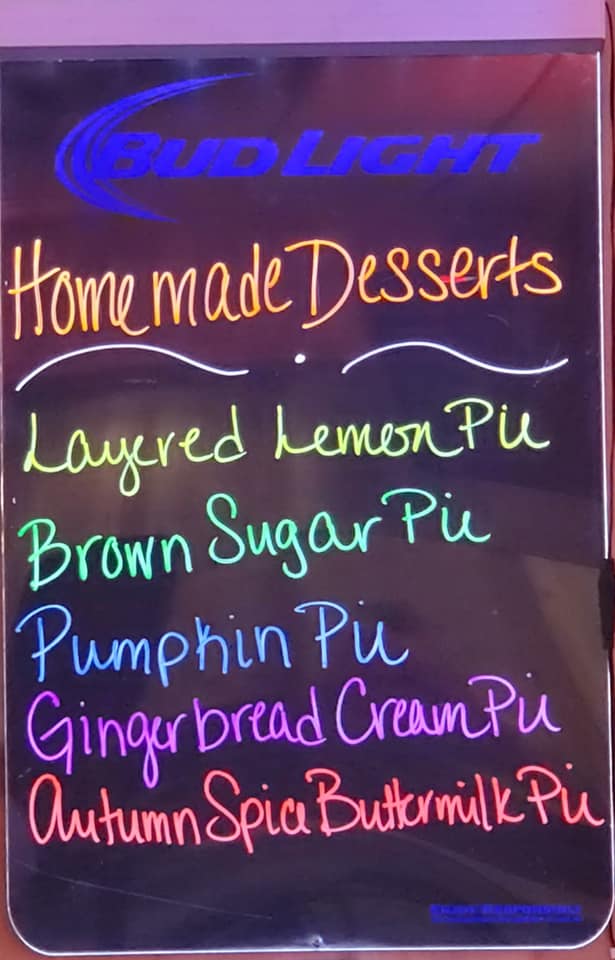 BUD LIGHT
Homemade Desserts
Layered Lemon Pie
Brown Sugar Pie
Pumpkin Pie
Gingerbread Cream Pie
Autumn Spice Buttermilk Pie
ENJOY RESPONSIBLY